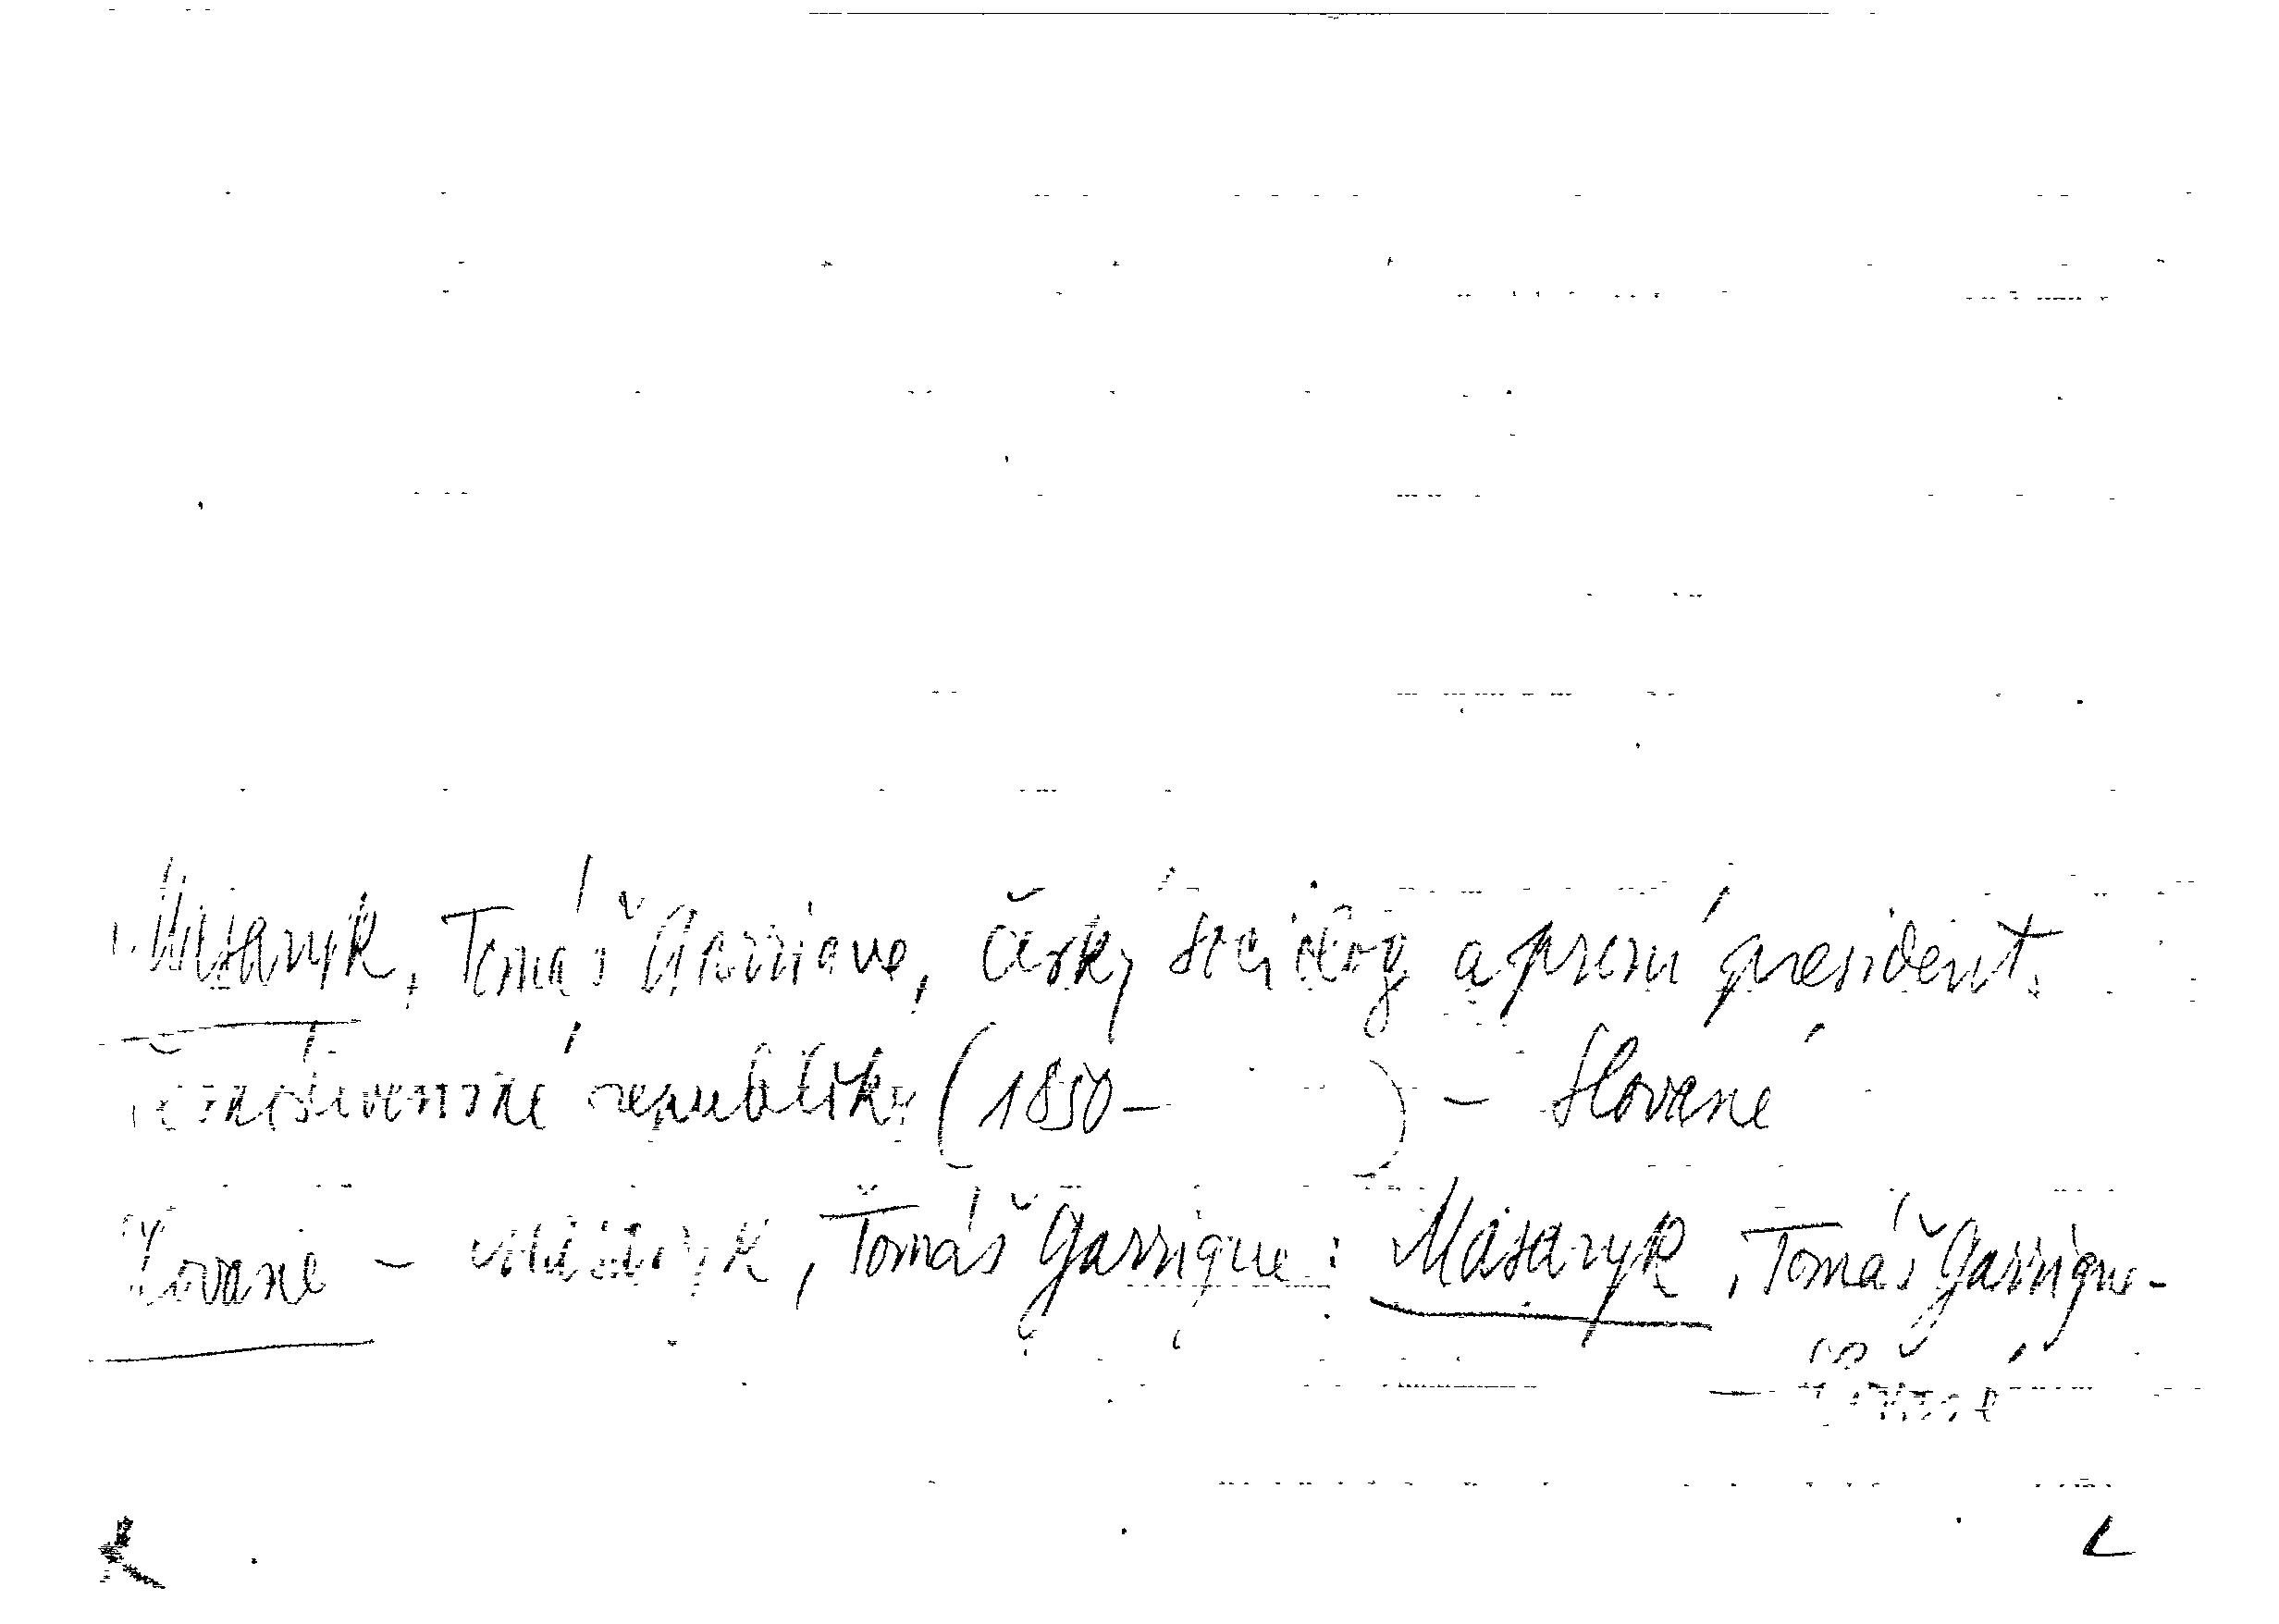 Masaryk, Tomáš Garrigue, český sociolog a první president
Československé republiky (1850- ) - Slované
Slované - Masaryk, Tomáš Garrigue: Masaryk, Tomáš Garrigue-